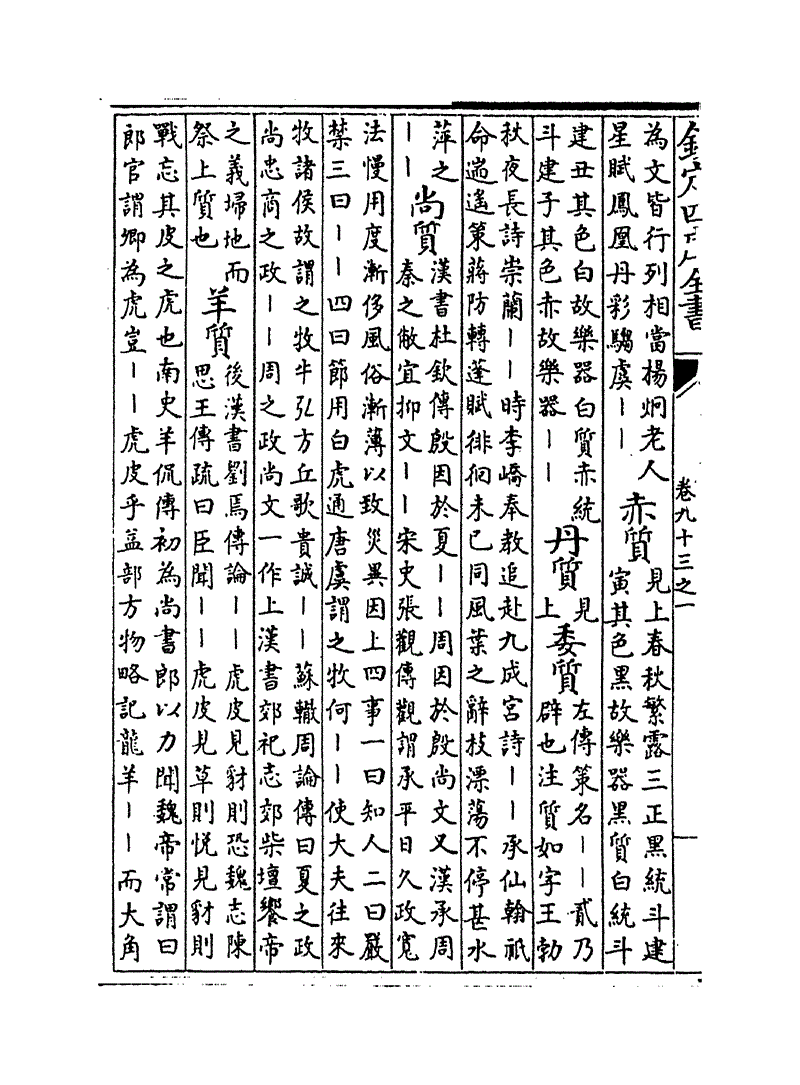 欽定四庫全書
卷九十三之一
為文皆行列相當楊炯老人
星賦鳳凰丹彩騶虞丨丨
赤質
見上春秋繁露三正黑統斗建
寅其色黑故樂器黑質白統斗
建丑其色白故樂器白質赤統
斗建子其色赤故樂器丨丨
丹質
見
上
委質
左傳策名丨丨貳乃
辟也注質如字王勃
秋夜長詩崇蘭丨丨時李嶠奉教追赴九成宮詩丨丨承仙翰祇
命遄遙策蔣防轉蓬賦徘徊未已同風葉之辭枝漂蕩不停甚水
萍之
丨丨
尚質
漢書杜欽傳殷因於夏丨丨周因於殷尚文又漢承周
秦之敝宜抑文丨丨宋史張觀傳觀謂承平日久政寬
法慢用度漸侈風俗漸薄以致災異因上四事一曰知人二曰嚴
禁三曰丨丨四曰節用白虎通唐虞謂之牧何丨丨使大夫往來
牧諸侯故謂之牧牛弘方丘歌貴誠丨丨蘇轍周論傳曰夏之政
尚忠商之政丨丨周之政尚文一作上漢書郊祀志郊柴壇饗帝
之義埽地而
祭上質也
羊質
後漢書劉焉傳論丨丨虎皮見豺則恐魏志陳
思王傳疏曰臣聞丨丨虎皮見草則悅見豺則
戰忘其皮之虎也南史羊侃傳初為尚書郎以力聞魏帝常謂曰
郎官謂卿為虎豈丨丨虎皮乎益部方物略記龍羊丨丨而大角